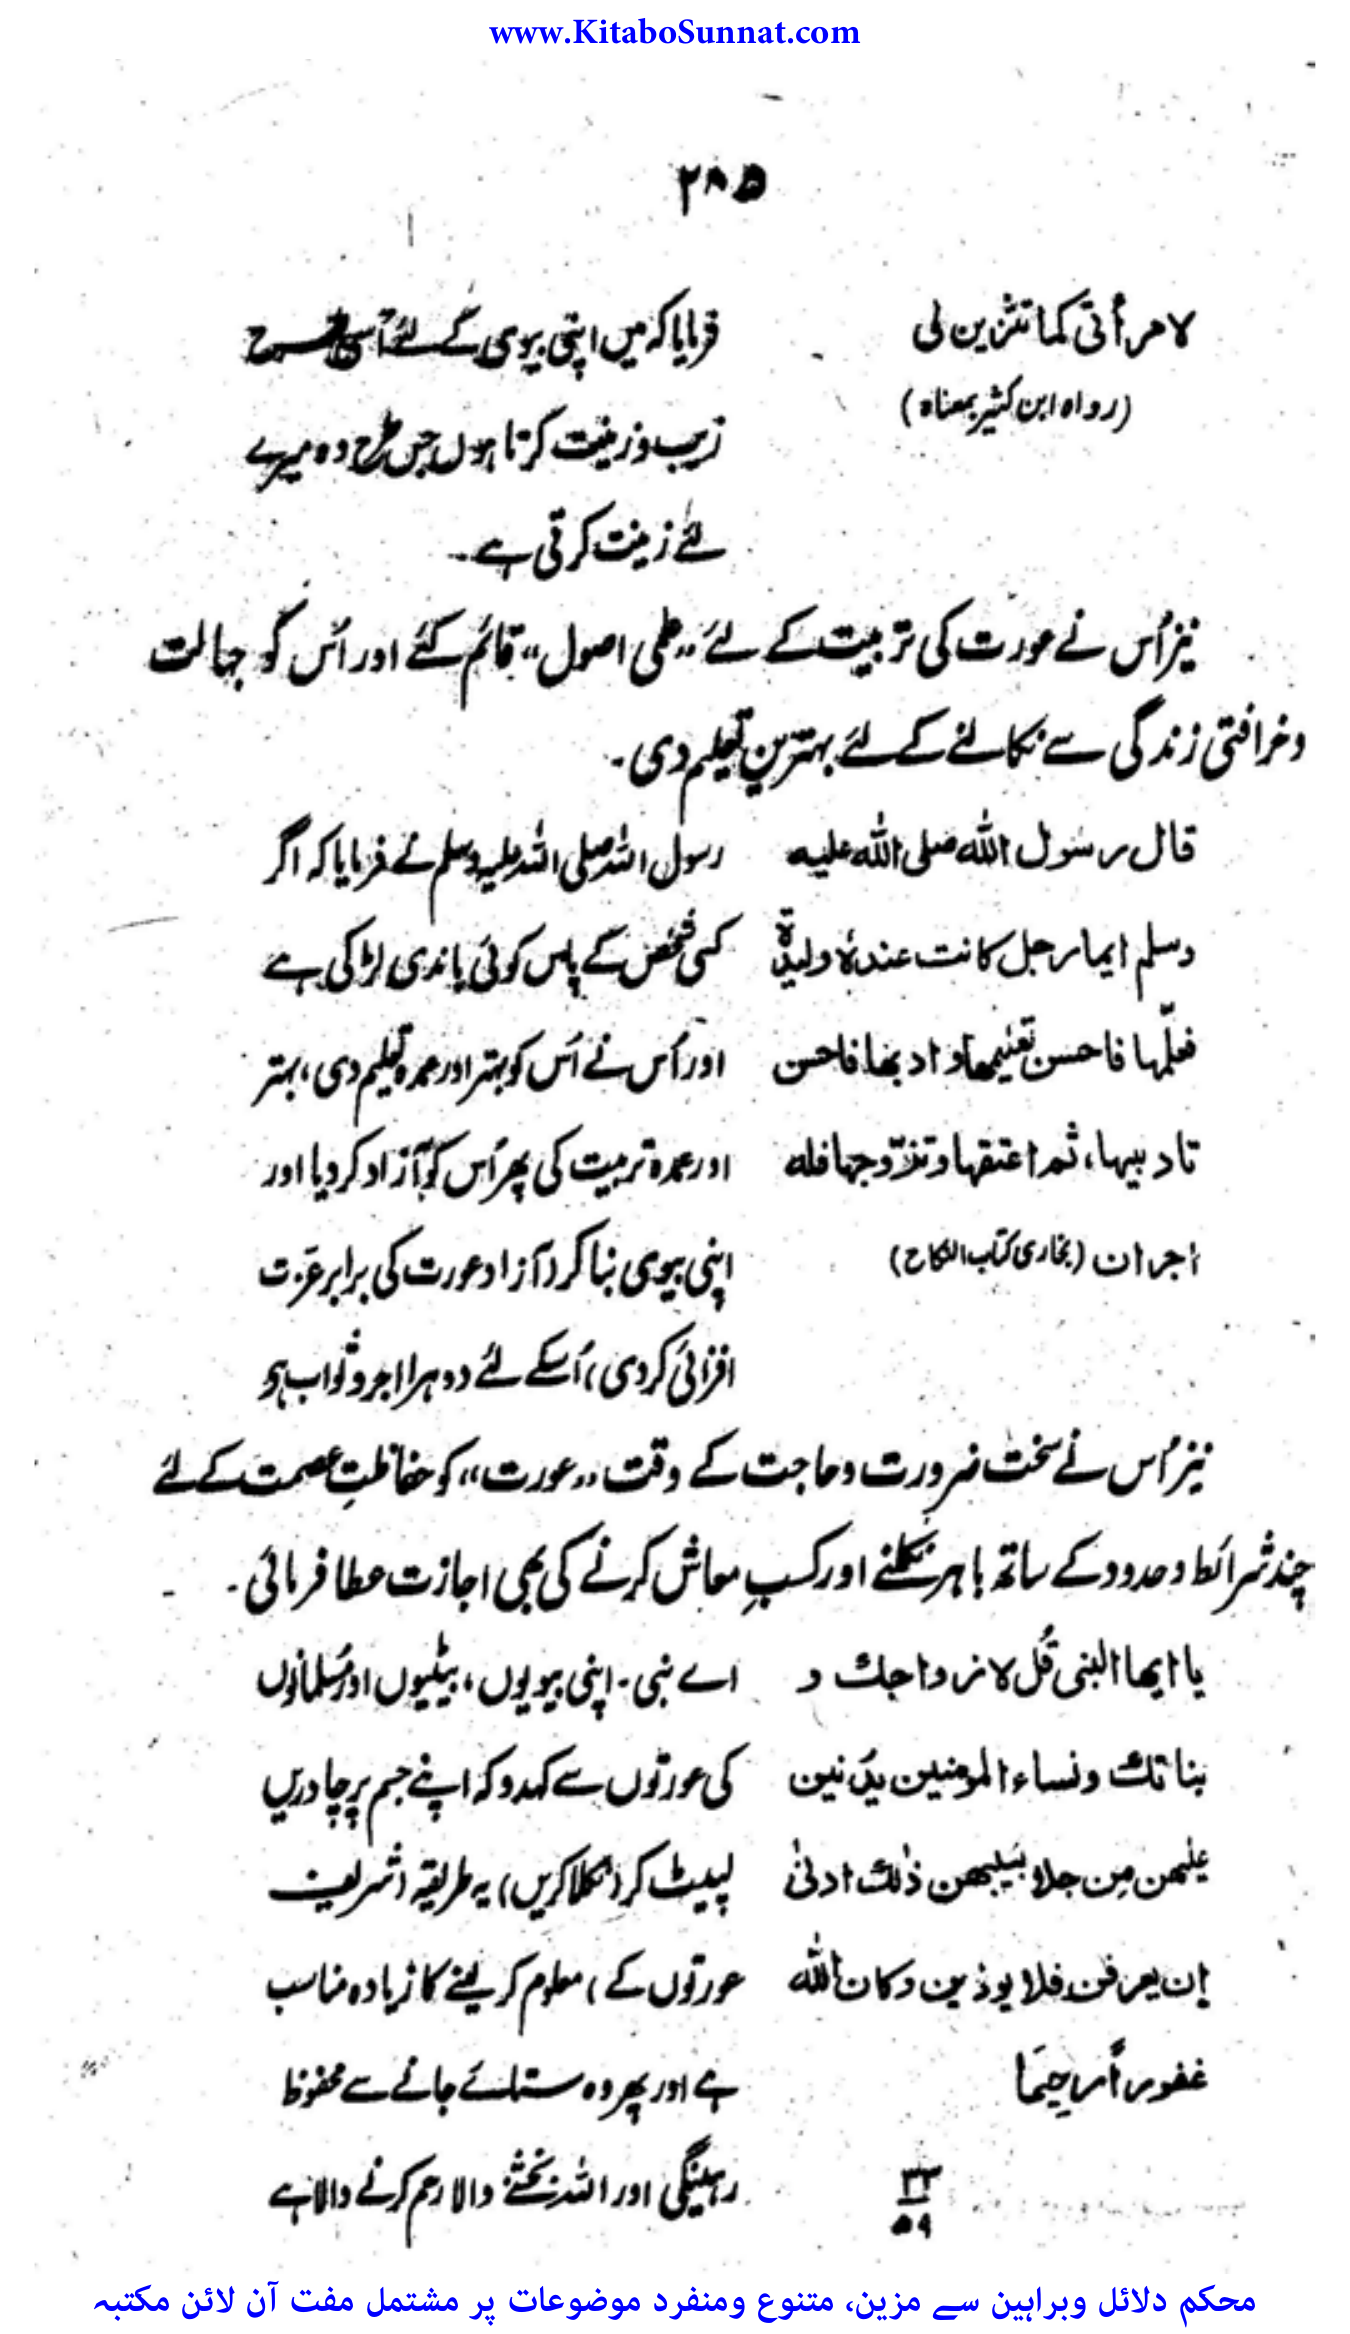 www.KitaboSunnat.com
۲۸۵
لامرأتی کما تتزین لی
(رواہ ابن کثیر بمعناہ)
فرمایا کہ میں اپنی بیوی کے لئے اسی طرح
زیب و زینت کرتا ہوں جس طرح وہ میرے
لئے زینت کرتی ہے۔
نیز اُس نے عورت کی تربیت کے لئے ,,علمی اصول،، قائم کئے اور اُس کو جہالت
وخرافتی زندگی سے نکالنے کے لئے بہترین تعلیم دی۔
قال رسول الله صلی الله علیہ
وسلم ایما رجل کانت عندہٗ ولیدۃ
فعلّمہا فاحسن تعلیمھا و ادبھا فاحسن
تادیبہا، ثم اعتقہا وتزوّجہا فلہ
اجران (بخاری کتاب النکاح)
رسول اللہ صلی اللہ علیہ وسلم نے فرمایا کہ اگر
کسی شخص کے پاس کوئی باندی لڑکی ہے
اور اُس نے اُس کو بہتر اور عمدہ تعلیم دی، بہتر
اور عمدہ تربیت کی پھر اُس کو آزاد کر دیا اور
اپنی بیوی بنا کر (آزاد عورت کی برابر عزت
افزائی کر دی) اُسکے لئے دوہرا اجر و ثواب ہو
نیز اُس نے سخت ضرورت وحاجت کے وقت ,,عورت،، کو حفاظتِ عصمت کے لئے
چند شرائط وحدود کے ساتھ باہر نکلنے اور کسبِ معاش کرنے کی بھی اجازت عطا فرمائی۔
یا ایھا النبی قُل لازواجك و
بناتك ونساء المومنین یدنین
علیھن مِن جلابیبھن ذٰلك ادنیٰ
اِن یعرفن فلا یوذین وکان الله
غفورًا رحیمًا
۳۳
۵۹
اے نبی۔ اپنی بیویوں، بیٹیوں اور مُسلمانوں
کی عورتوں سے کہدو کہ اپنے جسم پر چادریں
لپیٹ کر (نکلا کریں) یہ طریقہ (شریف
عورتوں کے) معلوم کر لینے کا زیادہ مناسب
ہے اور پھر وہ ستائے جانے سے محفوظ
رہینگی اور اللہ بخشنے والا رحم کرنے والا ہے
محکم دلائل وبراہین سے مزین، متنوع ومنفرد موضوعات پر مشتمل مفت آن لائن مکتبہ